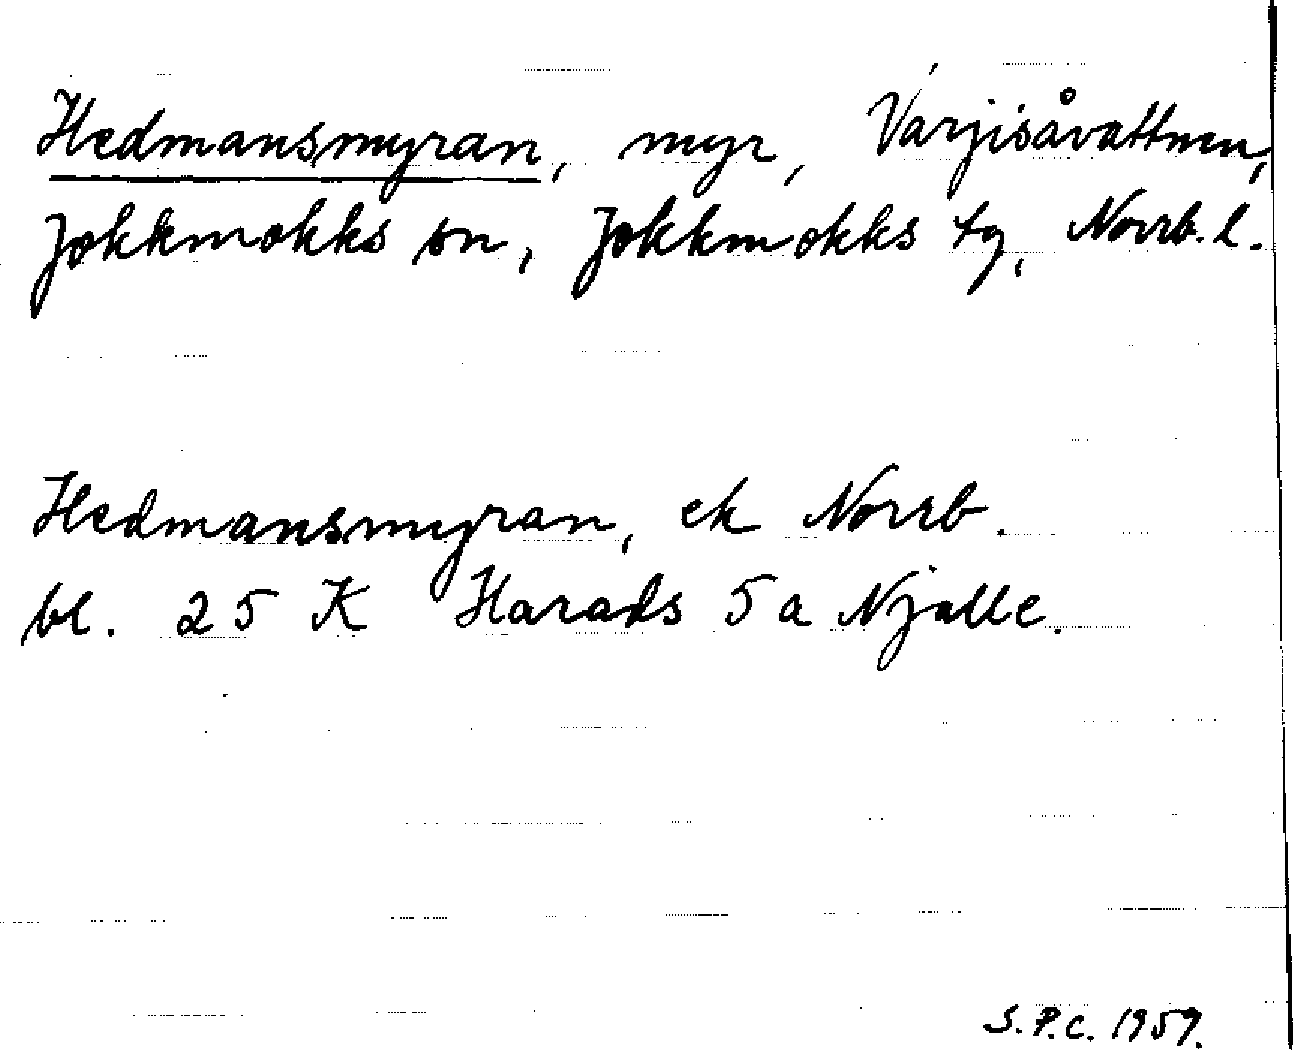 Hedmansmyran, myr, Varjisåvattnen,
Jokkmokks sn, Jokkmokks tg, Norrb. l.
Hedmansmyran, ek Norrb.
bl. 25 K Harads 5 a Njalle.
S.P.C. 1959.